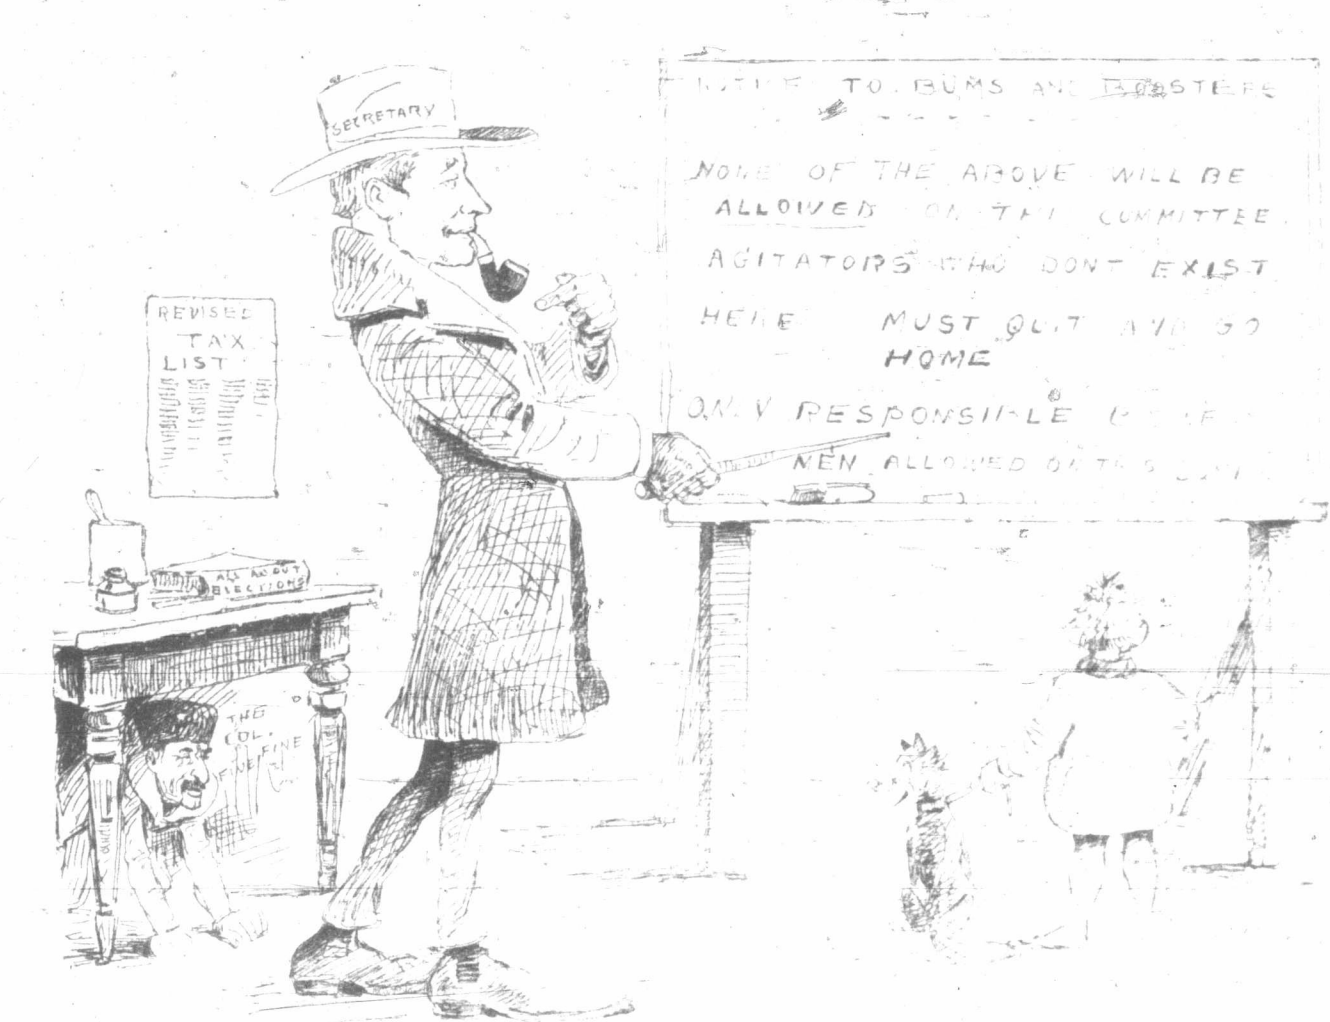 SECRETARY
NOTICE TO BUMS AND BOOSTERS
NONE OF THE ABOVE WILL BE
ALLOWED ON THE COMMITTEE
AGITATORS WHO DONT EXIST
HERE MUST QUIT AND GO
HOME
ONLY RESPONSIBLE
MEN ALLOWED ON THIS
REVISED
TAX
LIST
ALL ABOUT
ELECTIONS
THE
COL.